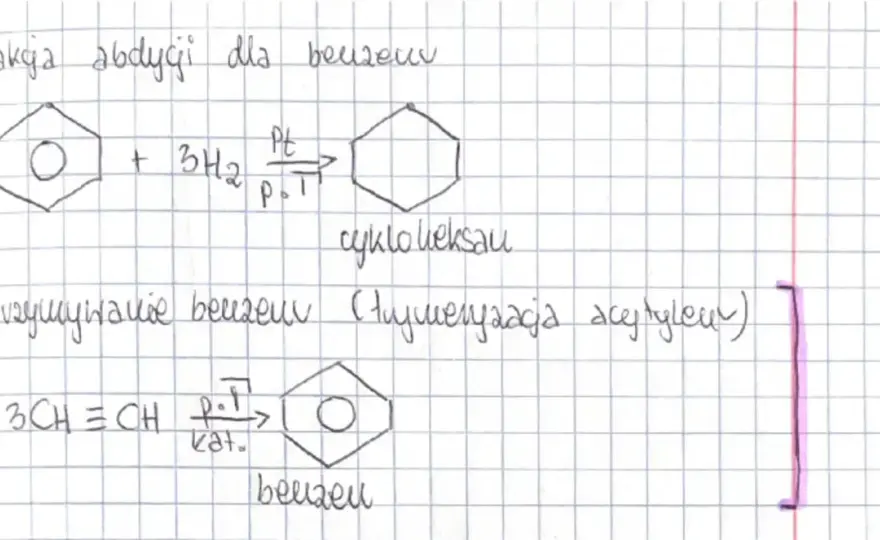 akcja abdycji dla benzenu
+ 3H₂ Pt
p.T
cykloheksan
uzymywanie benzenu (trymeryzacja acetylenu)
3CH ≡ CH p.T
kat.
benzen